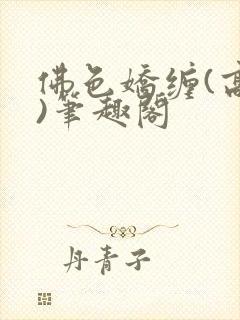 佛色嬌纏(高
)筆趣閣
丹青子